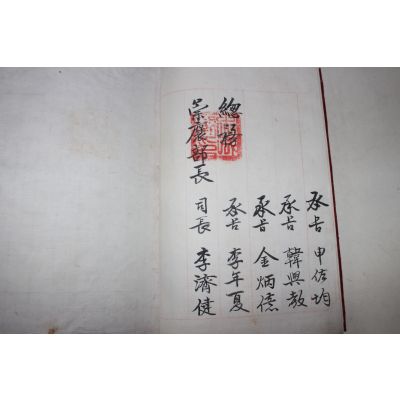 承旨 申佐均
承旨 韓興教
承旨 金炳億
總務 承旨 李年夏
部長 司長 李濟健